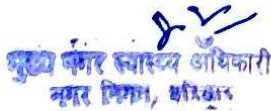 मुख्य नगर स्वास्थ्य अधिकारी
नगर निगम, हरिद्वार